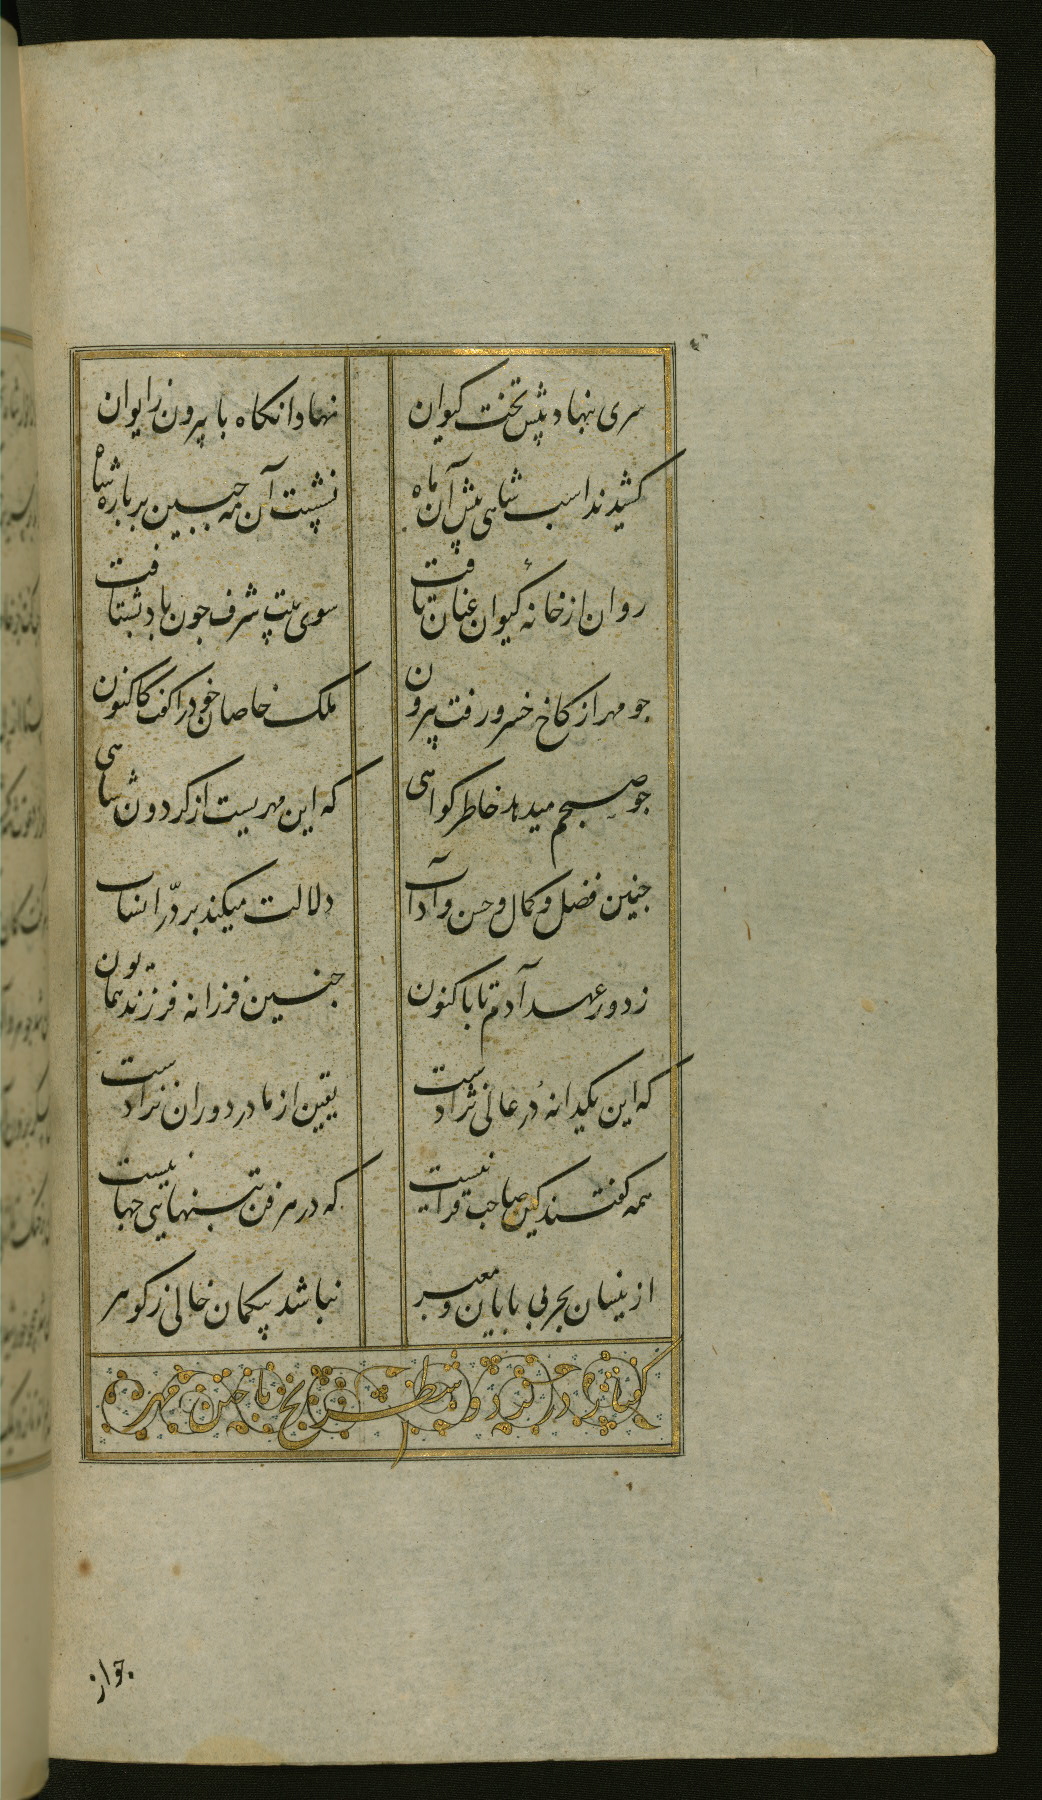 سری بنهاد پیش تخت کیوان
نهاد انکاه با پیرون ز ایوان
کشیدند اسب شاهی پیش آن ماه
نشست آن مه جبین بر باره شاه
روان از خانه کیوان عنان تافت
سوی بیت شرف چون باد بشتافت
چو مهر از کاخ خسرو رفت پیرون
ملک خاصان خود را کفت کاکنون
چو صبحم میدهد خاطر کواهی
که این مهریست از کردون شاهی
چنین فضل و کمال و حسن و آداب
دلالت میکند بر درّ انساب
ز دور عهد آدم تا باکنون
چنین فرزانه فرزند همایون
که این یکدانه دُر عالی نژادست
یقین از مادر دوران نزادست
همه کفتند کین صاحب قرانیست
که در هر فن تنهایی جهانیست
از نیسان بحر بی پایان و معبر
نباشد پیکمان خالی ز کوهر
شطرنج باختن مهر
جواز